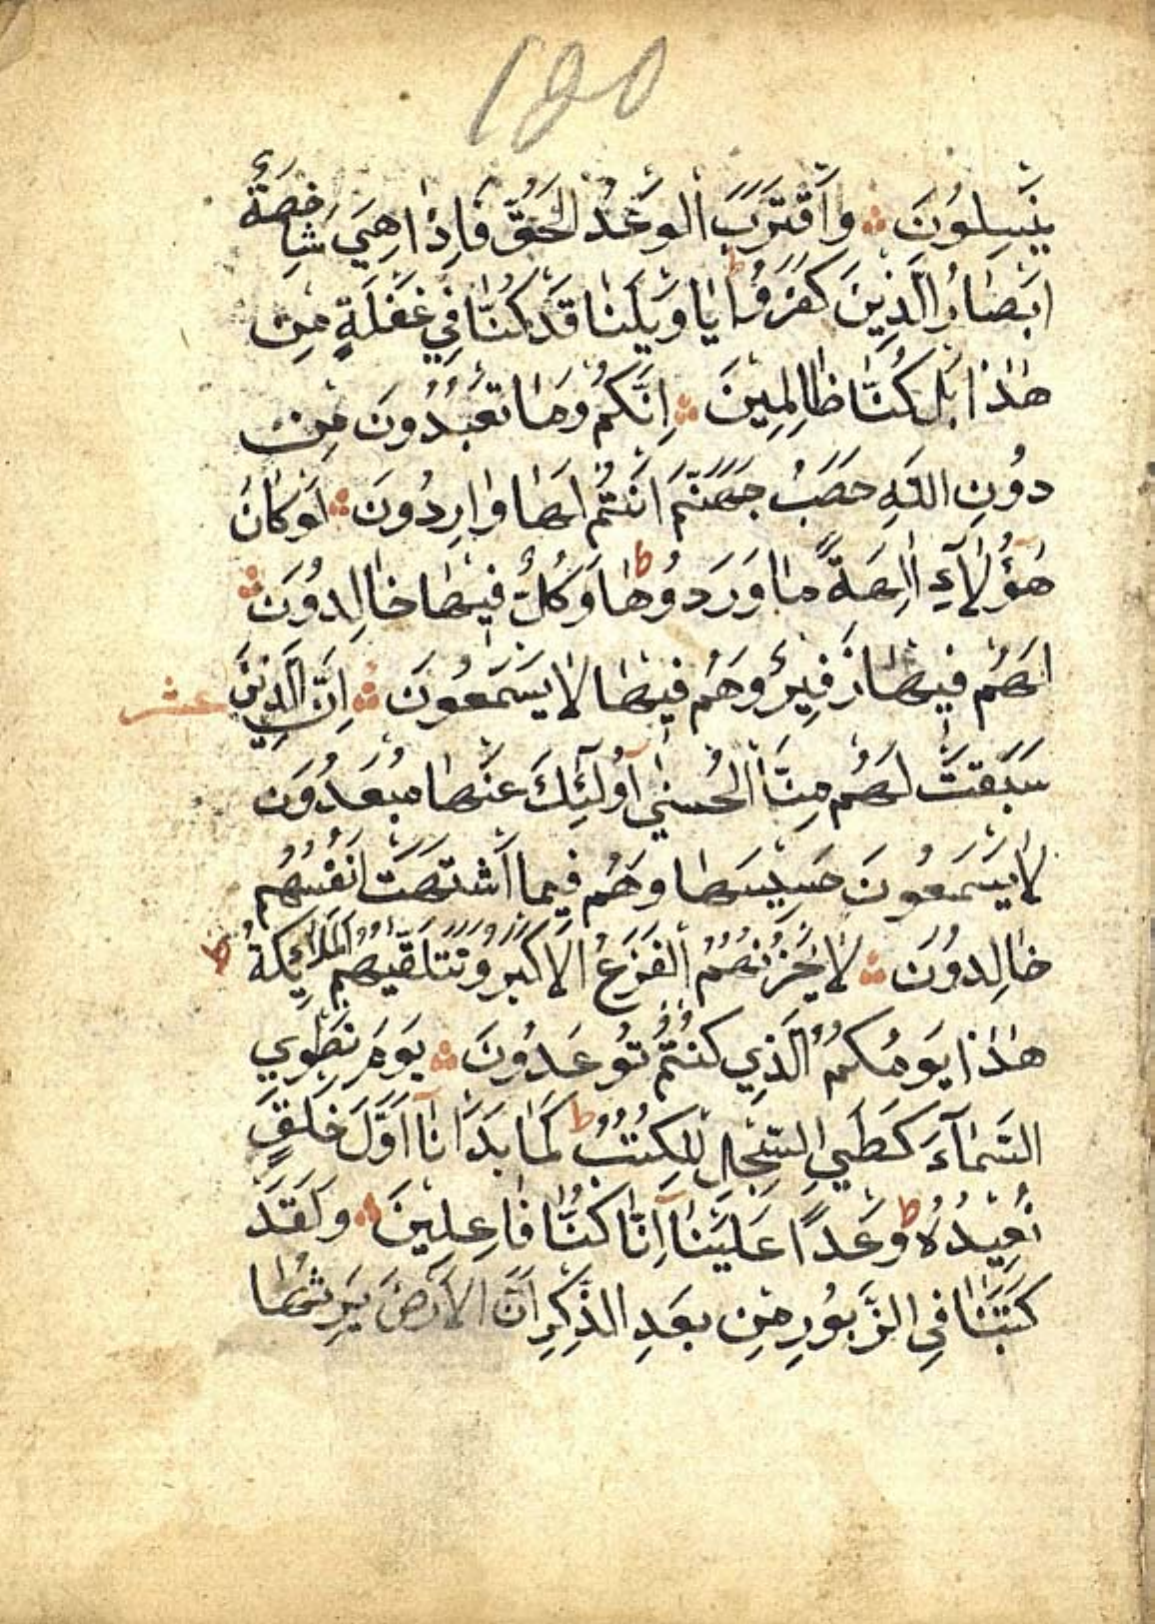 ١٥٥
يَنْسِلُونَ ۞ وَاقْتَرَبَ الْوَعْدُ الْحَقُّ فَاِذَا هِيَ شَاخِصَةٌ
اَبْصَارُ الَّذِينَ كَفَرُوا ط يَا وَيْلَنَا قَدْ كُنَّا فِي غَفْلَةٍ مِنْ
هٰذَا بَلْ كُنَّا ظَالِمِينَ ۞ اِنَّكُمْ وَمَا تَعْبُدُونَ مِنْ
دُونِ اللّٰهِ حَصَبُ جَهَنَّمَ اَنْتُمْ لَهَا وَارِدُونَ ۞ لَوْ كَانَ
هٰؤُلَآءِ اٰلِهَةً مَا وَرَدُوهَا ط وَكُلٌّ فِيهَا خَالِدُونَ ۞
لَهُمْ فِيهَا زَفِيرٌ وَهُمْ فِيهَا لَا يَسْمَعُونَ ۞ اِنَّ الَّذِينَ عشر
سَبَقَتْ لَهُمْ مِنَّا الْحُسْنٰى اُولٰٓئِكَ عَنْهَا مُبْعَدُونَ
لَا يَسْمَعُونَ حَسِيسَهَا وَهُمْ فِيمَا اشْتَهَتْ اَنْفُسُهُمْ
خَالِدُونَ ۞ لَا يَحْزُنُهُمُ الْفَزَعُ الْاَكْبَرُ وَتَتَلَقّٰيهُمُ الْمَلٰٓئِكَةُ ط
هٰذَا يَوْمُكُمُ الَّذِي كُنْتُمْ تُوعَدُونَ ۞ يَوْمَ نَطْوِي
السَّمَآءَ كَطَيِّ السِّجِلِّ لِلْكُتُبِ ط كَمَا بَدَاْنَآ اَوَّلَ خَلْقٍ
نُعِيدُهُ ط وَعْدًا عَلَيْنَا اِنَّا كُنَّا فَاعِلِينَ ۞ وَلَقَدْ
كَتَبْنَا فِي الزَّبُورِ مِنْ بَعْدِ الذِّكْرِ اَنَّ الْاَرْضَ يَرِثُهَا